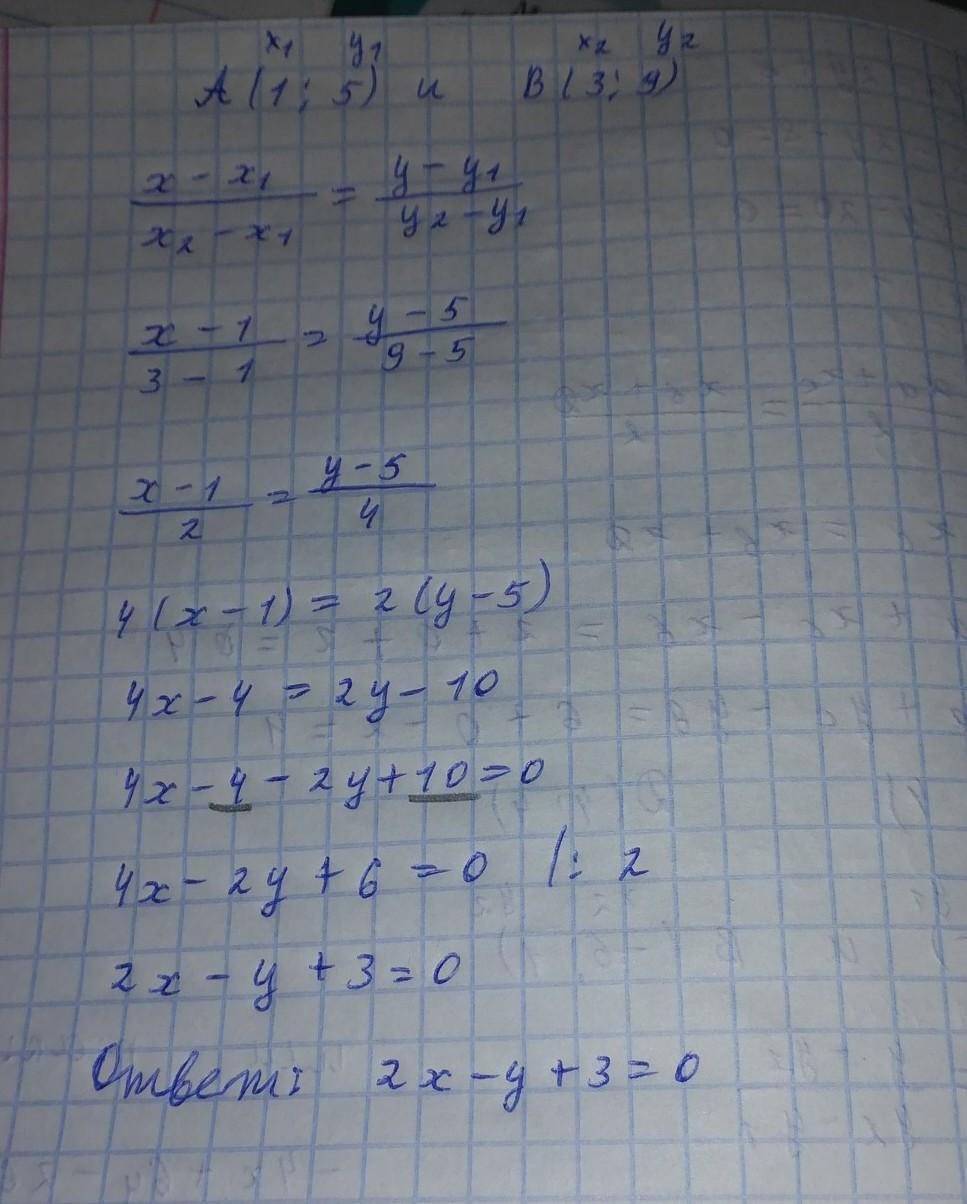 x₁ y₁ x₂ y₂
A (1; 5) и B (3; 9)
(x - x₁)/(x₂ - x₁) = (y - y₁)/(y₂ - y₁)
(x - 1)/(3 - 1) = (y - 5)/(9 - 5)
(x - 1)/2 = (y - 5)/4
4(x - 1) = 2(y - 5)
4x - 4 = 2y - 10
4x - 4 - 2y + 10 = 0
4x - 2y + 6 = 0 |: 2
2x - y + 3 = 0
Ответ: 2x - y + 3 = 0